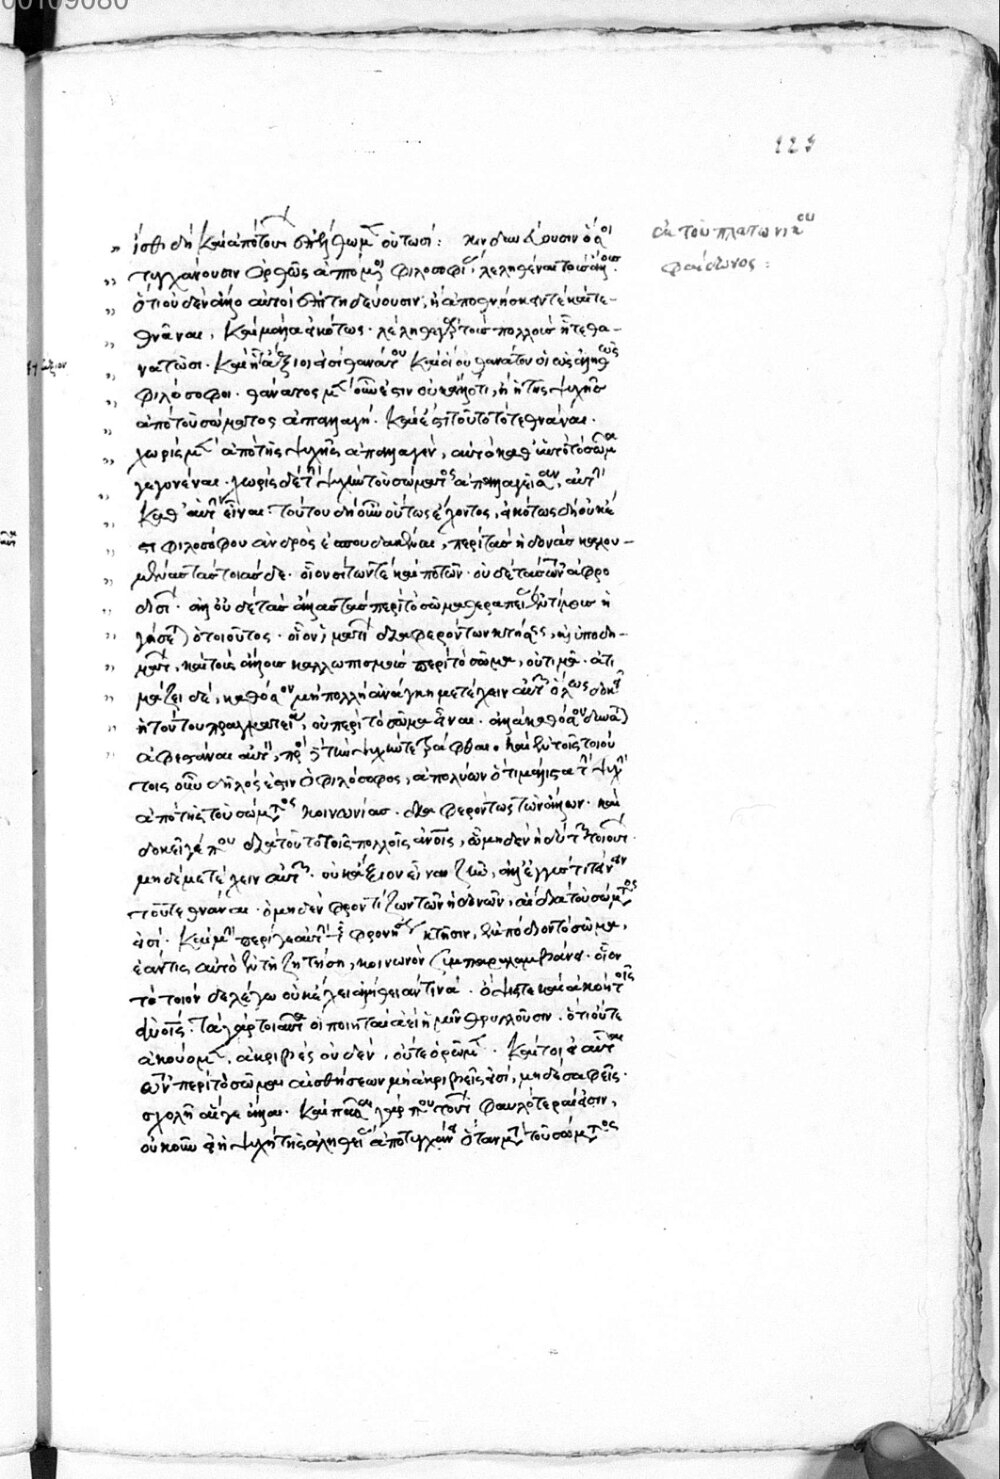 00109080
123
ἐκ τοῦ πλατωνικοῦ
φαίδωνος:
ἴσθι δὴ καὶ ἀπὸ τούτων οὑτωσί: κινδυνεύουσιν ὅσοι
τυγχάνουσιν ὀρθῶς ἁπτόμενοι φιλοσοφίας, λεληθέναι τοὺς ἄλλους
ὅτι οὐδὲν ἄλλο αὐτοὶ ἐπιτηδεύουσιν, ἢ ἀποθνήσκειν τὲ καὶ τε-
θνάναι. καὶ μάλα εἰκότως. λελήθασι τοὺς πολλοὺς ᾗ τε θα-
νατῶσι. καὶ ᾗ ἄξιοί εἰσι θανάτου καὶ οἵου θανάτου οἱ ὡς ἀληθῶς
φιλόσοφοι. θάνατος μὲν οὖν ἐστιν οὐκ ἄλλό τι, ἢ ἡ τῆς ψυχῆς
ἀπὸ τοῦ σώματος ἀπαλλαγή. καὶ ἔστι τοῦτο τὸ τεθνάναι.
χωρὶς μὲν ἀπὸ τῆς ψυχῆς ἀπαλλαγὲν, αὐτὸ καθ' αὑτὸ τὸ σῶμα
γεγονέναι. χωρὶς δὲ τὴν ψυχὴν τοῦ σώματος ἀπαλλαγεῖσαν, αὐτὴν
καθ' αὑτὴν εἶναι: τούτου δὴ οὖν οὕτως ἔχοντος, εἰκότως δὴ οὐκ ἔ
στι φιλοσόφου ἀνδρὸς ἐσπουδακέναι, περὶ τὰς ἡδονὰς καλου-
μένας τὰς τοιάσδε. οἷον σίτων τὲ καὶ ποτῶν. οὐδὲ τὰς τῶν ἀφρο
δισίων. ἀλλ' οὐδὲ τὰς ἄλλας τὰς περὶ τὸ σῶμα θεραπείας ἐντίμους ἡ
γήσεται ὁ τοιοῦτος. οἷον, ἱματίων διαφερόντων κτήσεις, καὶ ὑποδη-
μάτων, καὶ τοὺς ἄλλους καλλωπισμοὺς περὶ τὸ σῶμα, οὐ τιμᾶ. ἀτι
μάζει δὲ, καθόσον μὴ πολλὴ ἀνάγκη μετέχειν αὐτῶν. ὅλως δοκεῖ
ἡ τούτου πραγματεία, οὐ περὶ τὸ σῶμα εἶναι. ἀλλὰ καθόσον δύναται
ἀφεστάναι αὐτοῦ, πρὸς τὴν ψυχὴν τετράφθαι. καὶ ἐν τοῖς τοιού
τοις οὖν δῆλός ἐστιν ὁ φιλόσοφος, ἀπολύων ὅτι μάλιστα τὴν ψυχὴν
ἀπὸ τῆς τοῦ σώματος κοινωνίας. διαφερόντως τῶν ἄλλων. καὶ
δοκεῖ γέ που διὰ τοῦτο τοῖς πολλοῖς ἀνθρώποις, ᾧ μηδὲν ἡδὺ τῶν τοιούτων.
μηδὲ μετέχειν αὐτῶν. οὐκ ἄξιον εἶναι ζῆν, ἀλλ' ἐγγύς τι τείνειν
τοῦ τεθνάναι. ὁ μηδὲν φροντίζων τῶν ἡδονῶν, αἳ διὰ τοῦ σώματος
εἰσί. καὶ μὴν περί γε αὐτὴν τὴν φρονήσεως κτῆσιν, ἐμπόδιον τὸ σῶμα,
ἐάν τις αὐτὸ ἐν τῇ ζητήσει, κοινωνὸν συμπαραλαμβάνῃ. οἷον
τὸ τοιόνδε λέγω οὐκ ἔχει ἀλήθειαν τινά. ὄψις τε καὶ ἀκοὴ τοῖς
ἀνθρώποις. τὰ γὰρ τοιαῦτα οἱ ποιηταὶ ἀεὶ ἡμῖν θρυλλοῦσιν. ὅτι οὔτε
ἀκούομεν, ἀκριβὲς οὐδὲν, οὔτε ὁρῶμεν. καίτοι εἰ αὗται
τῶν περὶ τὸ σῶμα αἰσθήσεων μὴ ἀκριβεῖς εἰσὶ, μηδὲ σαφεῖς.
σχολῆ αἵ γε ἄλλαι. καὶ πᾶσαι γάρ που τούτων φαυλότεραι εἰσιν,
οὐκοῦν εἰ ἡ ψυχὴ τῆς ἀληθείας ἀποτυγχάνει ὅταν μετὰ τοῦ σώματος